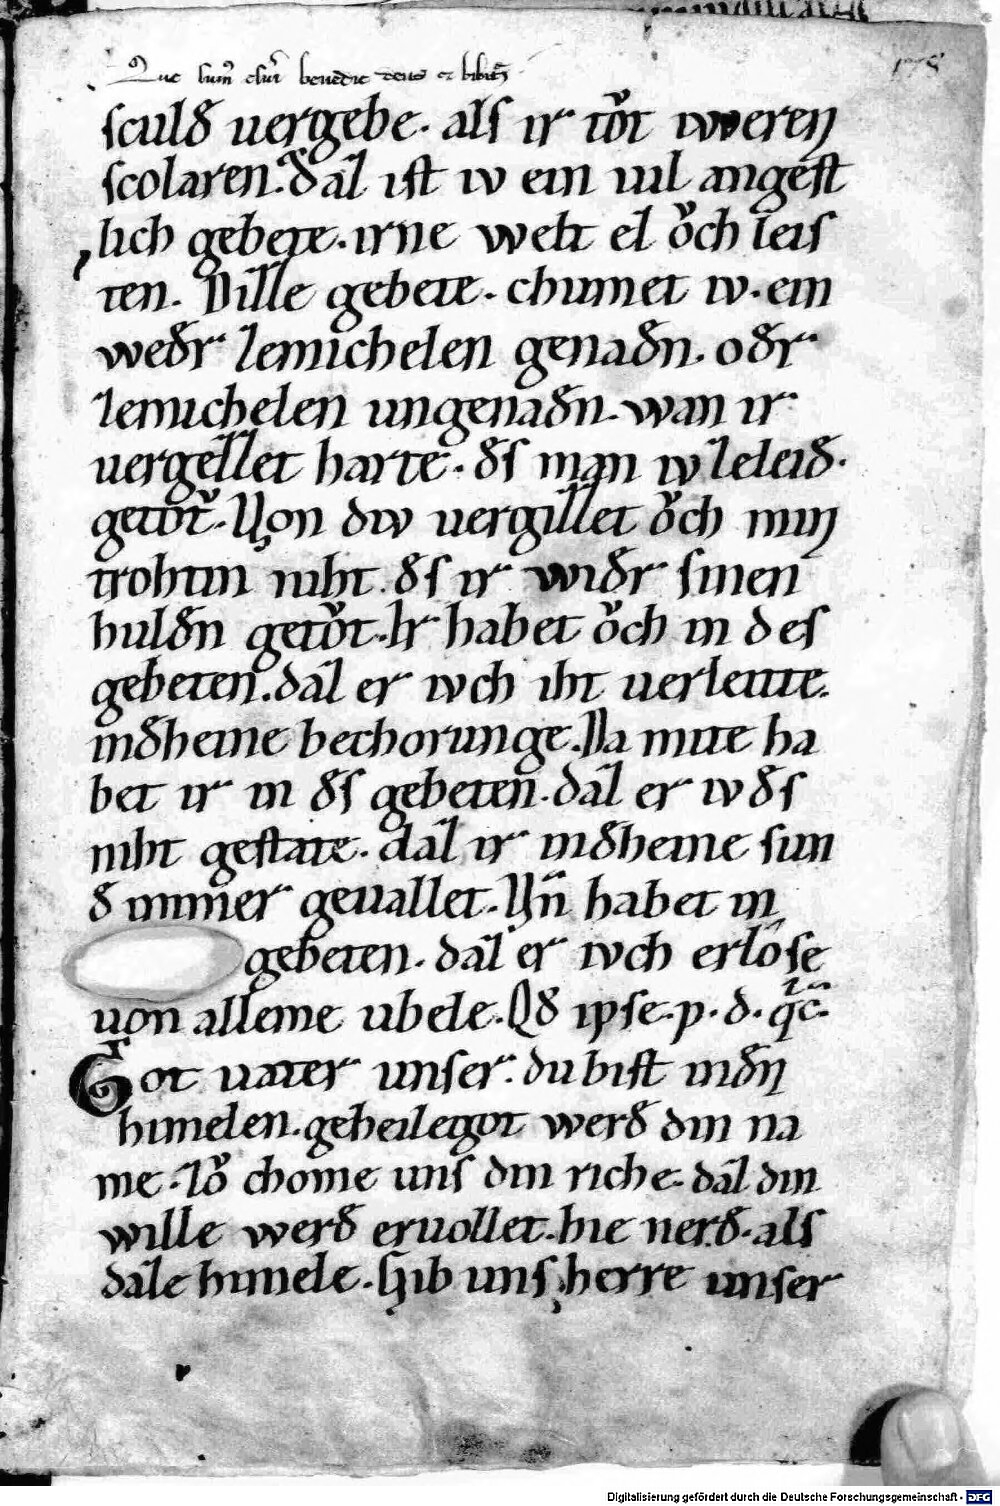 Que sum⁹ esur͛ benedic deus et bibit᷒
175
sculð uergebe. als ir tv̊t iwweren
scolaren. ðaz ist iv ein uil angest
lich gebete. irne welt ez ǒch leis
ten. Dizze gebete. chumet iv. ein
weðr zemichelen genaðn. oðr
zemichelen ungenaðn. wan ir
uergezzet harte. ðs man iv zeleið.
getv̊t. Uon div uergizzet ǒch min
trohtin niht. ðs ir wiðr sinen
hulðn getv̊t. Ir habet ǒch in des
gebeten. daz er iuch iht uerleitte.
inðheine bechorunge. Da mite ha
bet ir in ðs gebeten. daz er iv ðs
niht gestate. daz ir inðheine sun
ð immer geuallet. Un̄ habet in
gebeten. daz er iuch erlôse
uon alleme ubele. Qð ipse. p. d. q̄c̄.
Got uater unser. du bist inðn
himelen. geheilegot werð din na
me. Zǒ chome uns din riche. daz din
wille werð eruollet. hie nerð. als
daze himele. Gib uns herre unser
Digitalisierung gefördert durch die Deutsche Forschungsgemeinschaft - DFG